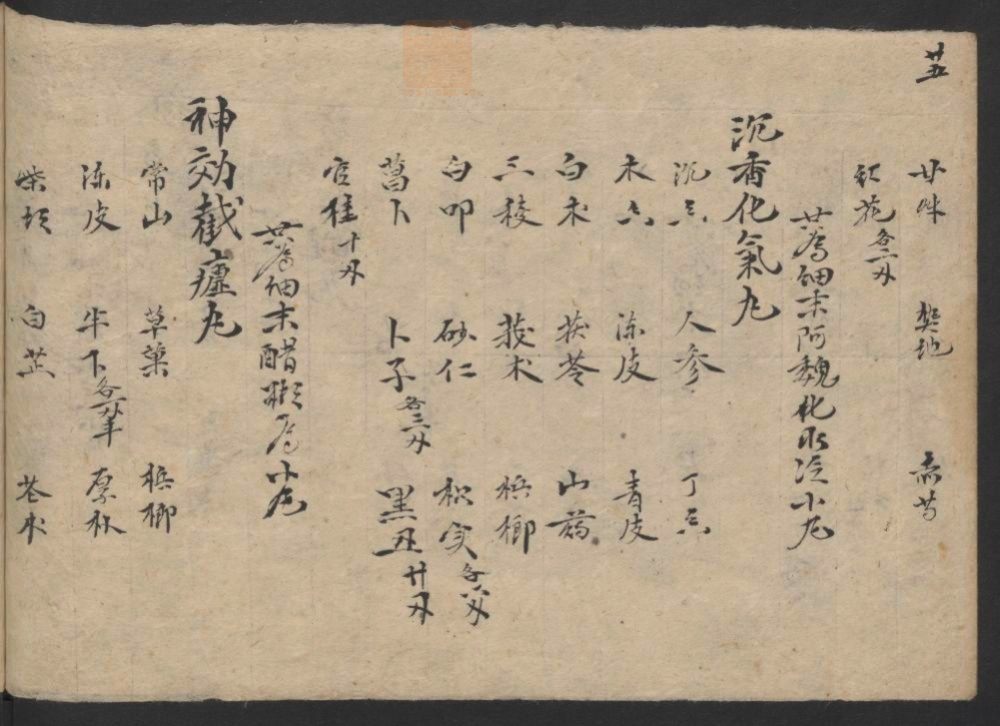 廿五
甘艸 熟地 赤芍
紅花各二刄
共為細末阿魏化水泛小丸
沉香化氣丸
沉香 人参 丁香
木香 陈皮 青皮
白术 茯苓 山药
三稜 莪术 槟榔
白叩 砂仁 枳实各八刄
菖卜 卜子各三刄 黑丑廿刄
官桂十刄
共為細末醋糊為小丸
神効截瘧丸
常山 草菓 槟榔
陈皮 半下
柴胡 白芷 苍术